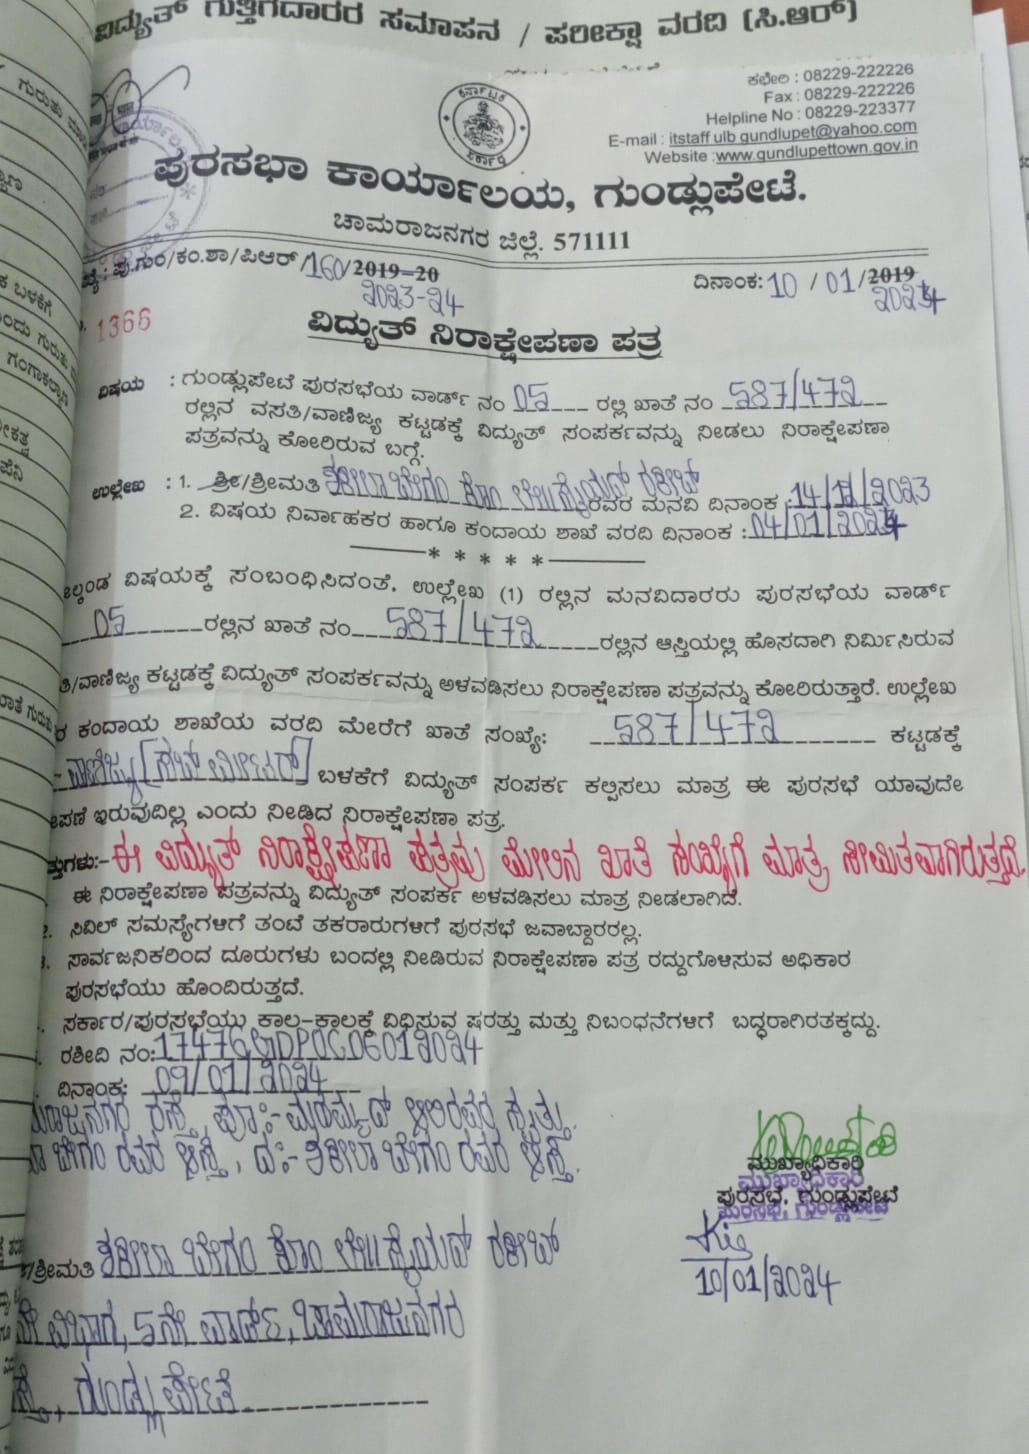 ವಿದ್ಯುತ್ ಗುತ್ತಿಗೆದಾರರ ಸಮಾಪನ / ಪರೀಕ್ಷಾ ವರದಿ (ಸಿ.ಆರ್)
ಕಛೇರಿ : 08229-222226
Fax : 08229-222226
Helpline No : 08229-223377
E-mail : itstaff ulb gundlupet@yahoo.com
Website :www.gundlupettown.gov.in
ಪುರಸಭಾ ಕಾರ್ಯಾಲಯ, ಗುಂಡ್ಲುಪೇಟೆ.
ಚಾಮರಾಜನಗರ ಜಿಲ್ಲೆ. 571111
ಪು.ಗುಂ/ಕಂ.ಶಾ/ಪಿಆರ್/160/2019-20
2023-24
ದಿನಾಂಕ: 10 / 01 /2019
2024
1366
ವಿದ್ಯುತ್ ನಿರಾಕ್ಷೇಪಣಾ ಪತ್ರ
ವಿಷಯ : ಗುಂಡ್ಲುಪೇಟೆ ಪುರಸಭೆಯ ವಾರ್ಡ್ ನಂ 05 ರಲ್ಲಿ ಖಾತೆ ನಂ 587/472
ರಲ್ಲಿನ ವಸತಿ/ವಾಣಿಜ್ಯ ಕಟ್ಟಡಕ್ಕೆ ವಿದ್ಯುತ್ ಸಂಪರ್ಕವನ್ನು ನೀಡಲು ನಿರಾಕ್ಷೇಪಣಾ
ಪತ್ರವನ್ನು ಕೋರಿರುವ ಬಗ್ಗೆ.
ಉಲ್ಲೇಖ : 1. ಶ್ರೀ/ಶ್ರೀಮತಿ ಶಕೀಲಾ ಬೇಗಂ ಕೋಂ ರವರ ಮನವಿ ದಿನಾಂಕ :14/12/2023
2. ವಿಷಯ ನಿರ್ವಾಹಕರ ಹಾಗೂ ಕಂದಾಯ ಶಾಖೆ ವರದಿ ದಿನಾಂಕ :04/01/2024
* * * * *
ಲ್ಕಂಡ ವಿಷಯಕ್ಕೆ ಸಂಬಂಧಿಸಿದಂತೆ, ಉಲ್ಲೇಖ (1) ರಲ್ಲಿನ ಮನವಿದಾರರು ಪುರಸಭೆಯ ವಾರ್ಡ್
05 ರಲ್ಲಿನ ಖಾತೆ ನಂ 587/472 ರಲ್ಲಿನ ಆಸ್ತಿಯಲ್ಲಿ ಹೊಸದಾಗಿ ನಿರ್ಮಿಸಿರುವ
ತಿ/ವಾಣಿಜ್ಯ ಕಟ್ಟಡಕ್ಕೆ ವಿದ್ಯುತ್ ಸಂಪರ್ಕವನ್ನು ಅಳವಡಿಸಲು ನಿರಾಕ್ಷೇಪಣಾ ಪತ್ರವನ್ನು ಕೋರಿರುತ್ತಾರೆ. ಉಲ್ಲೇಖ
ರ ಕಂದಾಯ ಶಾಖೆಯ ವರದಿ ಮೇರೆಗೆ ಖಾತೆ ಸಂಖ್ಯೆ: 587/472 ಕಟ್ಟಡಕ್ಕೆ
ವಾಣಿಜ್ಯ [ಸಬ್ ಮೀಟರ್] ಬಳಕೆಗೆ ವಿದ್ಯುತ್ ಸಂಪರ್ಕ ಕಲ್ಪಿಸಲು ಮಾತ್ರ ಈ ಪುರಸಭೆ ಯಾವುದೇ
ೇಪಣೆ ಇರುವುದಿಲ್ಲ ಎಂದು ನೀಡಿದ ನಿರಾಕ್ಷೇಪಣಾ ಪತ್ರ.
ತ್ತುಗಳು:- ಈ ವಿದ್ಯುತ್ ನಿರಾಕ್ಷೇಪಣಾ ಪತ್ರವು ಮೇಲಿನ ಖಾತೆ ಸಂಖ್ಯೆಗೆ ಮಾತ್ರ ಸೀಮಿತವಾಗಿರುತ್ತದೆ.
ಈ ನಿರಾಕ್ಷೇಪಣಾ ಪತ್ರವನ್ನು ವಿದ್ಯುತ್ ಸಂಪರ್ಕ ಅಳವಡಿಸಲು ಮಾತ್ರ ನೀಡಲಾಗಿದೆ.
2. ಸಿವಿಲ್ ಸಮಸ್ಯೆಗಳಿಗೆ ತಂಟೆ ತಕರಾರುಗಳಿಗೆ ಪುರಸಭೆ ಜವಾಬ್ದಾರರಲ್ಲ.
ಸಾರ್ವಜನಿಕರಿಂದ ದೂರುಗಳು ಬಂದಲ್ಲಿ ನೀಡಿರುವ ನಿರಾಕ್ಷೇಪಣಾ ಪತ್ರ ರದ್ದುಗೊಳಿಸುವ ಅಧಿಕಾರ
ಪುರಸಭೆಯು ಹೊಂದಿರುತ್ತದೆ.
ಸರ್ಕಾರ/ಪುರಸಭೆಯು ಕಾಲ-ಕಾಲಕ್ಕೆ ವಿಧಿಸುವ ಷರತ್ತು ಮತ್ತು ನಿಬಂಧನೆಗಳಿಗೆ ಬದ್ಧರಾಗಿರತಕ್ಕದ್ದು.
ರಶೀದಿ ನಂ:17476GDPOCD6012024
ದಿನಾಂಕ: 09/01/2024
ರಸ್ತೆ, ಪೂ:- ಸ್ವತ್ತು.
ಬೇಗಂ ರವರ ಆಸ್ತಿ, ದ:- ಶಕೀಲಾ ಬೇಗಂ ರವರ ಆಸ್ತಿ.
ಮುಖ್ಯಾಧಿಕಾರಿ
ಮುಖ್ಯಾಧಿಕಾರಿ
ಪುರಸಭೆ, ಗುಂಡ್ಲುಪೇಟೆ
ಪುರಸಭೆ, ಗುಂಡ್ಲುಪೇಟೆ
10/01/2024
/ಶ್ರೀಮತಿ ಶಕೀಲಾ ಬೇಗಂ ಕೋಂ
ನೇ ವಿಭಾಗ, 5ನೇ ವಾರ್ಡ್, ಚಾಮರಾಜನಗರ
ಸ್ತೆ, ಗುಂಡ್ಲುಪೇಟೆ